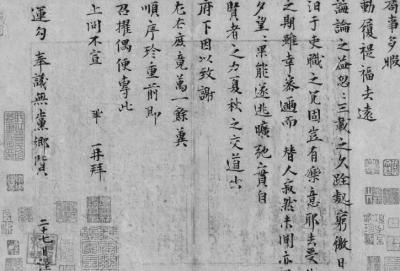 局事多暇
動履禔福去遠
誨論之益忽忽三載之久跧處窮徼日
汨于吏職之冗固豈有樂意耶去受
之期雖幸密邇而 替人寂然未聞亦
夕望望果能遂逃曠弛實自
賢者之力夏秋之交道出
府下因以致謝
左右庶竟萬一餘冀
順序珍重前即
召擢偶便專此
上問不宣 鞏 再拜
運勾奉議無黨鄉賢
二十七日謹